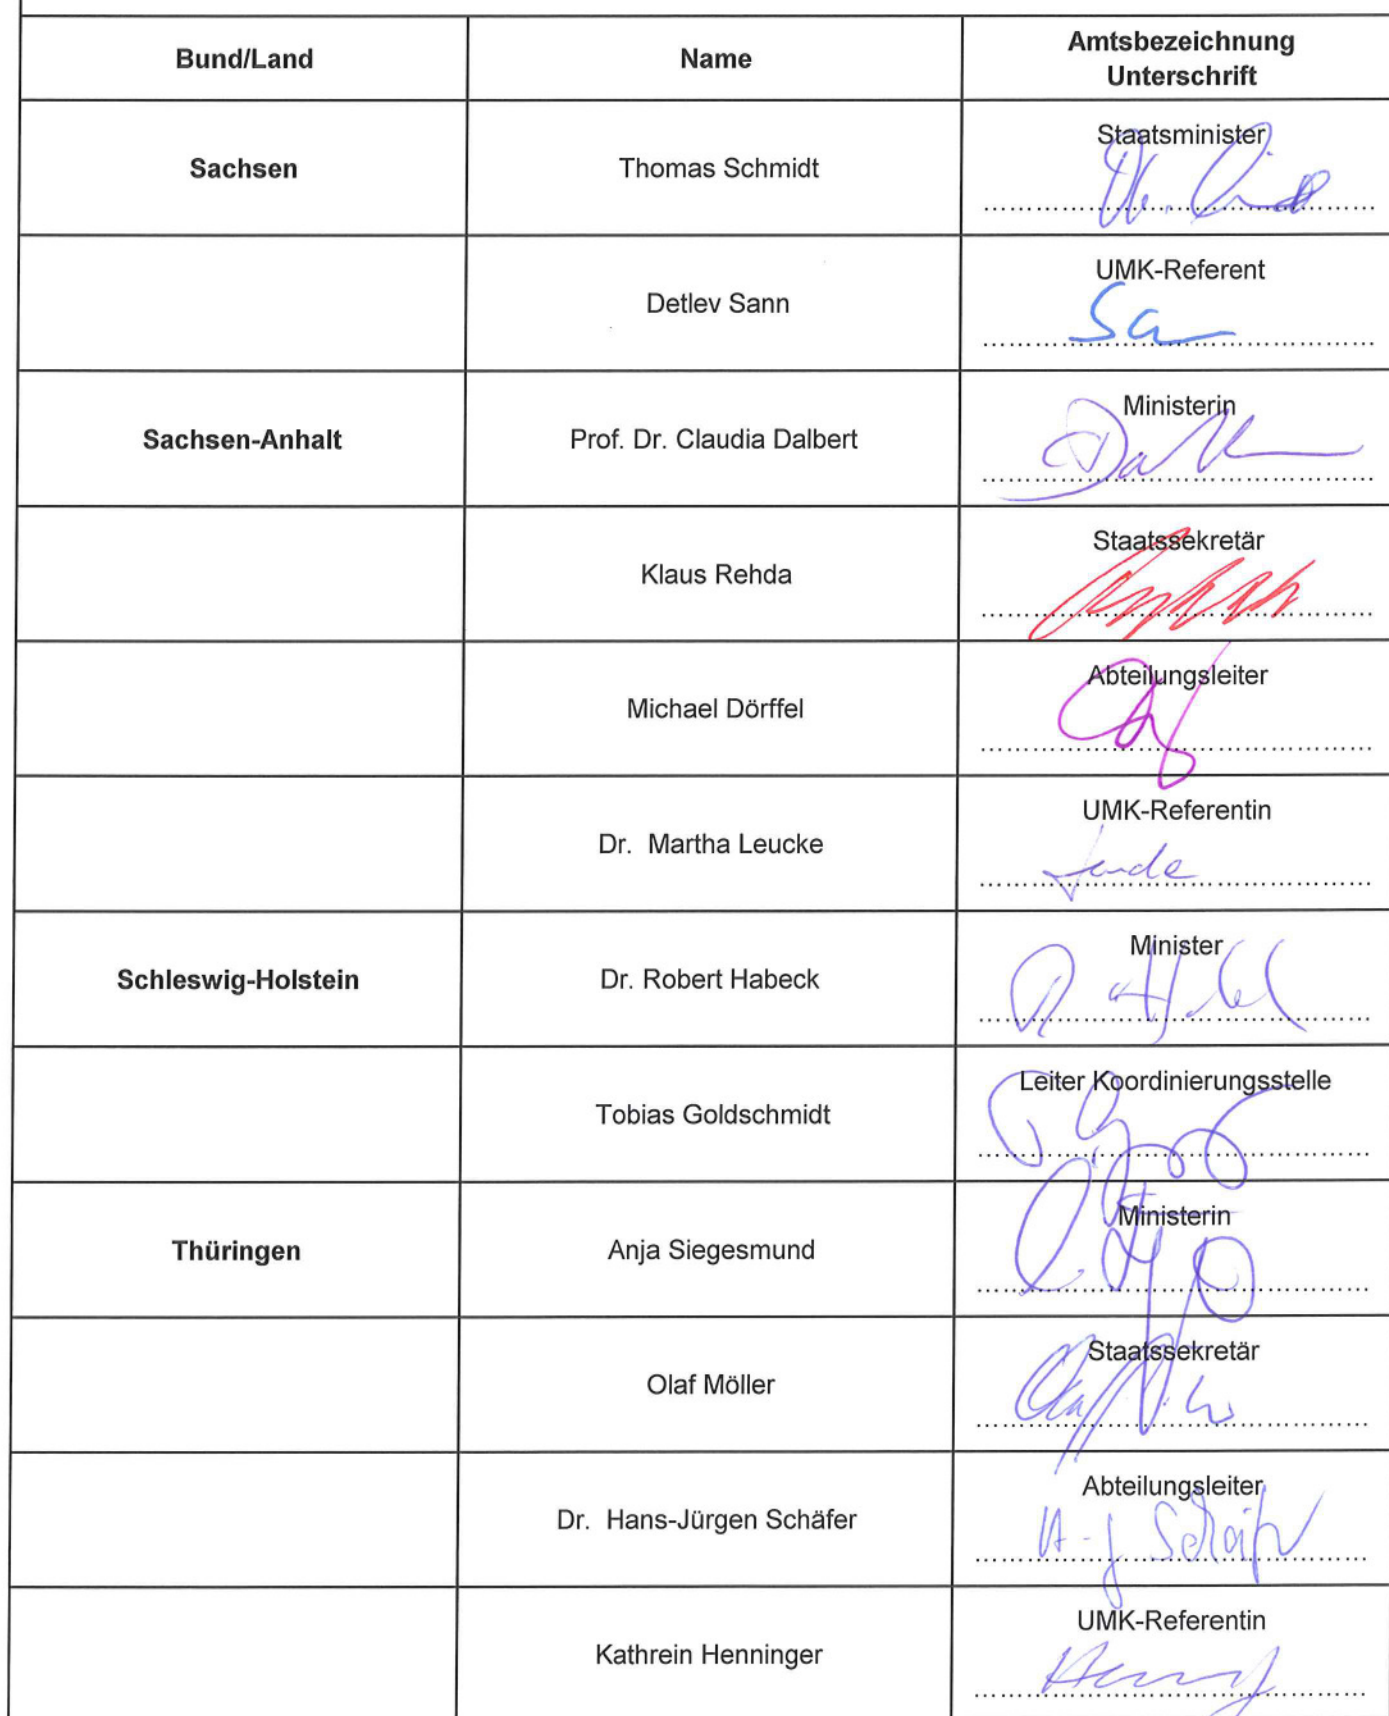 Bund/Land Name Amtsbezeichnung
Unterschrift
Sachsen Thomas Schmidt Staatsminister
Detlev Sann UMK-Referent
Sachsen-Anhalt Prof. Dr. Claudia Dalbert Ministerin
Klaus Rehda Staatssekretär
Michael Dörffel Abteilungsleiter
Dr. Martha Leucke UMK-Referentin
Schleswig-Holstein Dr. Robert Habeck Minister
Tobias Goldschmidt Leiter Koordinierungsstelle
Thüringen Anja Siegesmund Ministerin
Olaf Möller Staatssekretär
Dr. Hans-Jürgen Schäfer Abteilungsleiter
Kathrein Henninger UMK-Referentin